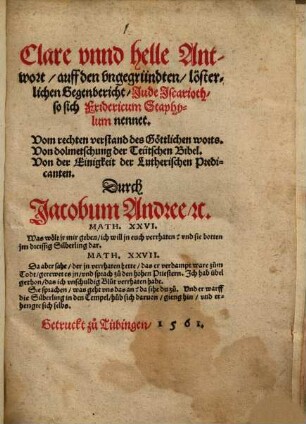 Clare vnnd helle Ant-
wort / auff den vngegründten / löster-
lichen Gegenbericht / Jude Iscarioth /
so sich Fridericum Staphy-
lum nennet.
Vom rechten verstand des Göttlichen worts.
Von dolmetschung der Teütschen Bibel.
Von der Einigkeit der Lutherischen Predi-
canten.
Durch
Jacobum Andree / ꝛc.
MATH. XXVI.
Was wölt jr mir geben / ich will jn euch verhaten? vnd sie botten
jm dreissig Silberling dar.
MATH. XXVII.
Da aber sahe / der jn verhaten hette / das er verdampt ware zům
Todt / gerewet es jn / vnd sprach zů den hohen Priestern. Ich hab übel
gethon / das ich vnschuldig Blůt verhaten habe.
Sie sprachen / was geht vns das an? da sihe du zů. Vnd er warff
die Silberling in den Tempel / hůb sich daruon / gieng hin / vnd er-
hengte sich selbs.
Getruckt zů Tübingen / 1561.